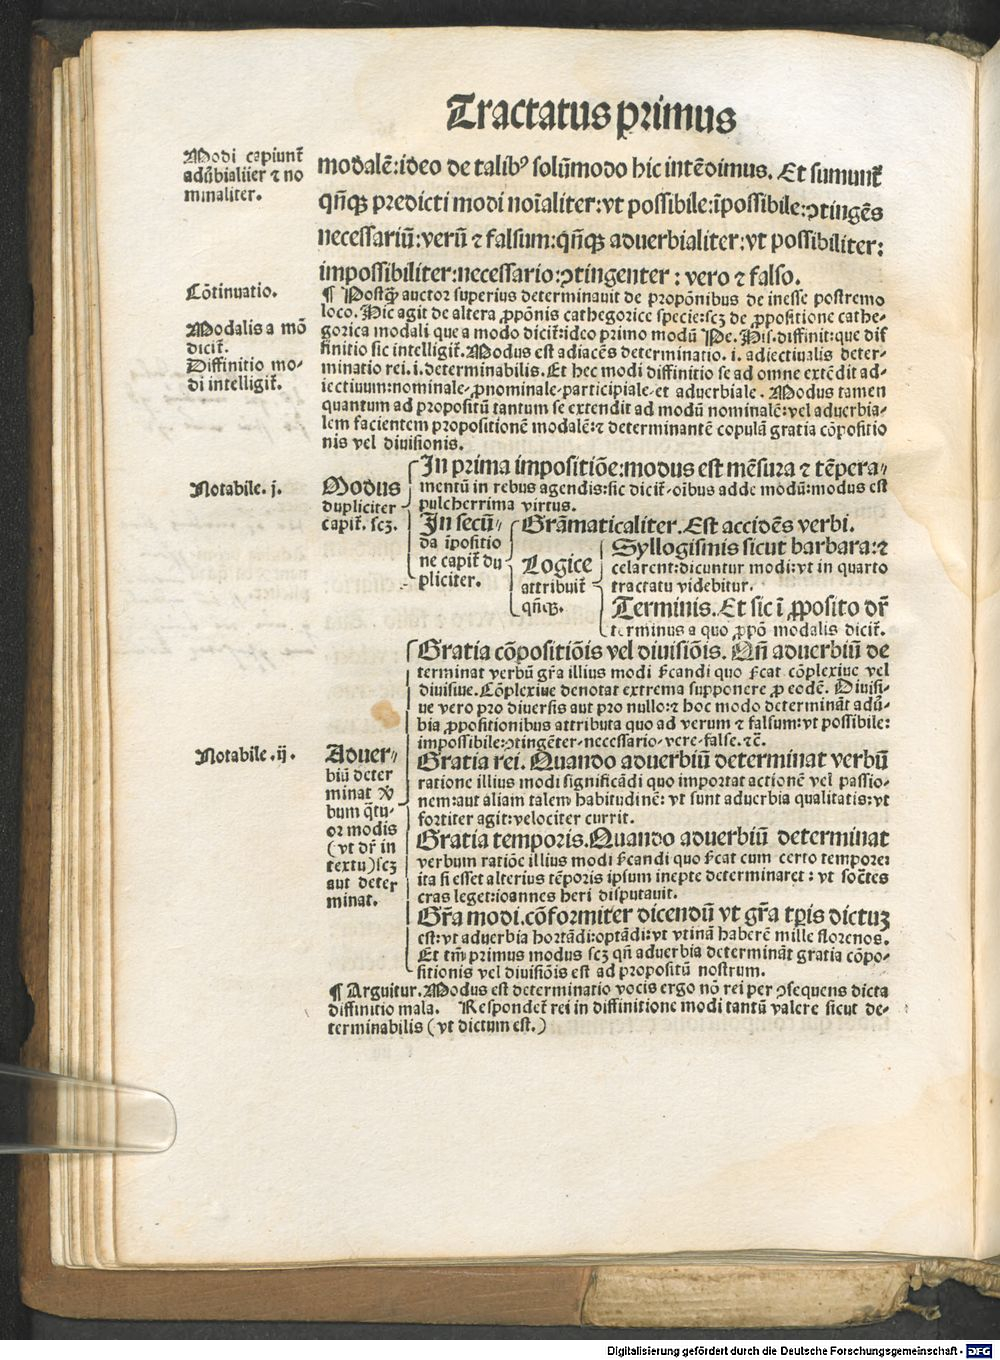 Tractatus primus
Modi capiunt᷑
aduͤbialiter ⁊ no
minaliter.
modalē:ideo de talibꝰ solūmodo hic intēdimus. Et sumunt᷑
qn̄qꝫ predicti modi noīaliter:vt possibile:īpossibile:ꝯtingēs
necessariū:verū ⁊ falsum:qn̄qꝫ aduerbialiter:vt possibiliter:
impossibiliter:necessario:ꝯtingenter : vero ⁊ falso.
Cōtinuatio.
¶ Postqꝫ auctor superius determinauit de propōnibus de inesse postremo
loco. Hic agit de altera ꝓpōnis cathegorice specie:scꝫ de ꝓpositione cathe-
Modalis a mō
dicit᷑.
gorica modali que a modo dicit᷑:ideo primo modū Pe. His. diffinit:que dif
finitio sic intelligit᷑. Modus est adiacēs determinatio. i. adiectiualis deter-
Diffinitio mo-
di intelligit᷑.
minatio rei. i. determinabilis. Et hec modi diffinitio se ad omne extēdit ad-
iectiuum:nominale-ꝓnominale-participiale-et aduerbiale. Modus tamen
quantum ad propositū tantum se extendit ad modū nominalē:vel aduerbia-
lem facientem propositionē modalē:⁊ determinantē copulā gratia cōpositio
nis vel diuisionis.
Notabile. j.
Modus
dupliciter
capit᷑. scꝫ.
In prima impositiōe:modus est mēsura ⁊ tēpera-
mentū in rebus agendis:sic dicit᷑-oībus adde modū:modus est
pulcherrima virtus.
In secū-
da īpositio
ne capit᷑ du
pliciter.
Grāmaticaliter. Est accidēs verbi.
Logice
attribuit᷑
qn̄qꝫ.
Syllogismis sicut barbara:⁊
celarent:dicuntur modi:vt in quarto
tractatu videbitur.
Terminis. Et sic ī ꝓposito dr̄
terminus a quo ꝓpō modalis dicit᷑.
Notabile .ij.
Aduer-
biū deter
minat v̄
bum q̄tu-
or modis
(vt dr̄ in
textu) scꝫ
aut deter
minat.
Gratia cōpositiōis vel diuisiōis. Qn̄ aduerbiū de
terminat verbū gr̄a illius modi sͥcandi quo sͥcat cōplexiue vel
diuisiue. Cōplexiue denotat extrema supponere ꝓ eodē. Diuisi-
ue vero pro diuersis aut pro nullo:⁊ hoc modo determināt adū-
bia ꝓpositionibus attributa quo ad verum ⁊ falsum:vt possibile:
impossibile:ꝯtingēter-necessario-vere-false.⁊c̄.
Gratia rei. Quando aduerbiū determinat verbū
ratione illius modi significādi quo importat actionē vel passio-
nem:aut aliam talem habitudinē: vt sunt aduerbia qualitatis:vt
fortiter agit:velociter currit.
Gratia temporis. Quando aduerbiū determinat
verbum ratiōe illius modi sͥcandi quo sͥcat cum certo tempore:
ita si esset alterius tēporis ipsum inepte determinaret : vt socͭes
cras leget:ioannes heri disputauit.
Gr̄a modi. cōformiter dicendū vt gr̄a tp̄is dictuꝫ
est:vt aduerbia hortādi:optādi:vt vtinā haberē mille florenos.
Et tm̄ primus modus scꝫ qn̄ aduerbia determināt gratia cōpo-
sitionis vel diuisiōis est ad propositū nostrum.
¶ Arguitur. Modus est determinatio vocis ergo nō rei per ꝯsequens dicta
diffinitio mala. Respondet᷑ rei in diffinitione modi tantū valere sicut de-
terminabilis (vt dictum est.)
Digitalisierung gefördert durch die Deutsche Forschungsgemeinschaft - DFG